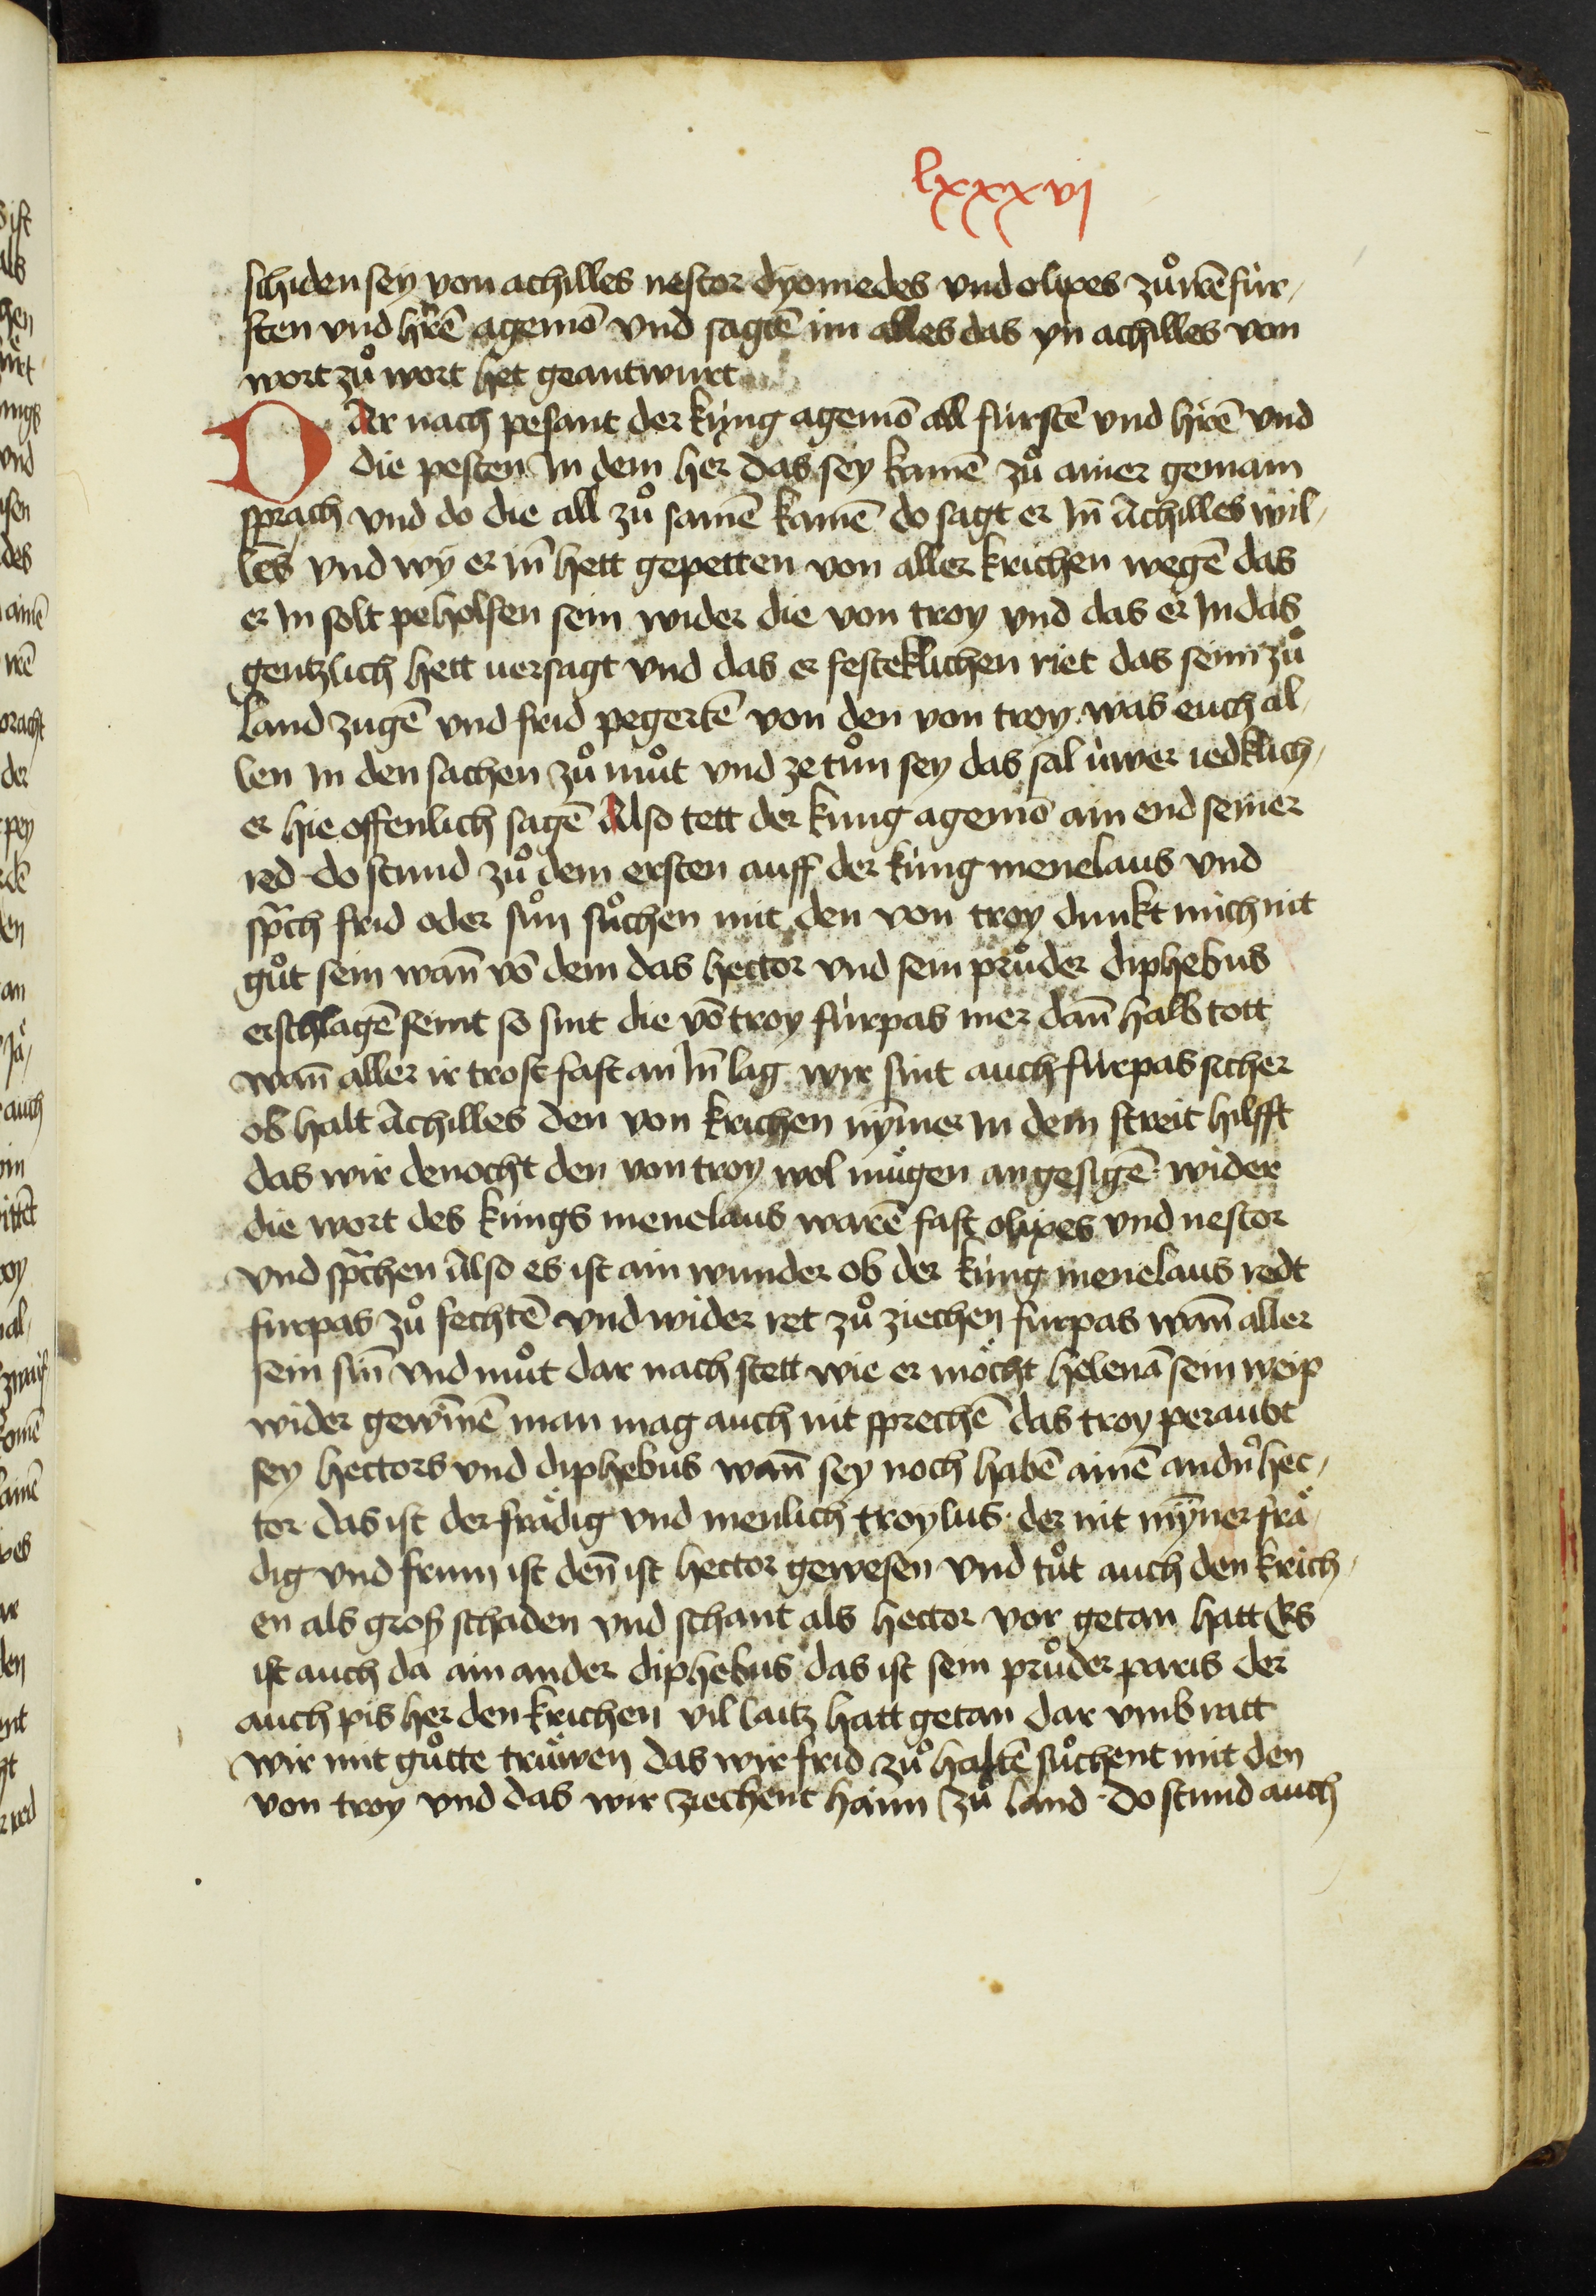 lxxxvj
schiden sey von achilles nestor dyomedes vnd olixes zuͦ irē für⸗
sten vnd hrē̃ agemō vnd sagtē im alles das yn achilles von
wort zuͦ wort het geantwurt
DAr nach pesant der küng agemō all fürstē vnd hrē̃ vnd
die pesten In dem her das sey kamē zuͦ ainer gemain
sprach vnd do die all zuͦ samē kamē do sagt er In̄ Achilles wil⸗
lēs vnd wy er in̄ hett gepetten von aller krichen wegē das
er In solt peholfen sein wider die von troy vnd das er In das
gentzlich hett versagt vnd das er festeklichen riet das seim zuͦ
land zugē vnd frid pegertē von den von troy was euch al⸗
len In den sachen zuͦ muͦt vnd ze tuͦn sey das sal üwer iedklich⸗
er hie offenlich sagē Also tett der kung agemō ain end seiner
red do stund zuͦ dem ersten auff der küng menelaus vnd
sp̃ch frid oder suͦn suͦchen mit den von troy dunkt mich nit
guͦt sein wan̄ vō dem das hector vnd sein pruͦder diphebus
erschlagē seint so sint die vō troy fürpas mer dan̄ halb tott
wan̄ aller ir trost fast an In̄ lag wir sint auch fürpas sicher
ob halt Achilles den von krichen nȳmer In dem streit hilfft
das wir denocht den von troy wol mügen an gesigē wider
die wort des küngs menelaus warē fast olixes vnd nestor
vnd sp̃chen Also es ist ain wunder ob der küng menelaus redt
furpas zuͦ fechtē vnd wider ret zuͦ ziechen furpas wan̄ aller
sein sin̄ vnd muͦt dar nach stett wie er möcht helenā sein weip
wider gewīnē man mag auch nit sprechē das troy peraubt
sey hectors vnd diphebus wan̄ sey noch habē ainē andn̄ hec⸗
tor das ist der frädig vnd menlich troylus der nit mȳner frä⸗
dig vnd frum ist den̄ ist hector gewesen vnd tuͦt auch den krich⸗
en als groß schaden vnd schant als hector vor getan hatt Es
ist auch da ain ander diphebus das ist sein pruͦder paris der
auch pis her den krichen vil laitz hatt getan dar vmb ratt
wir mit guͦtte trüwen das wir frid zuͦ haltē suͦchent mit den
von troy vnd das wir ziechent haim zuͦ land do stund auch